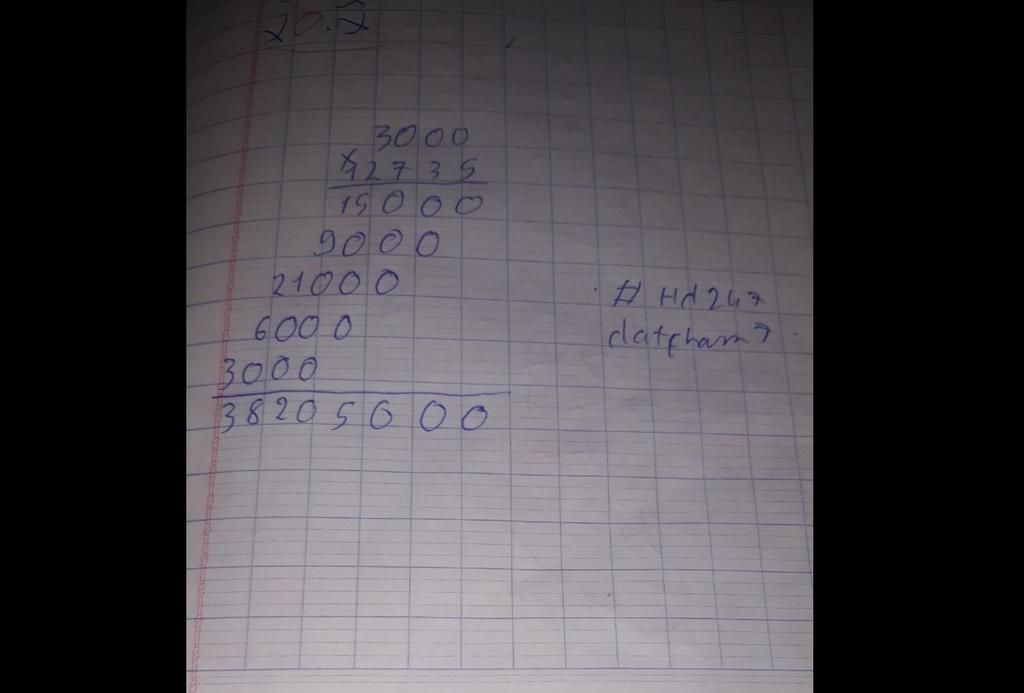 20.2
3000
x12735
15000
9000
21000
6000
3000
38205000
# Hd247
datpham7